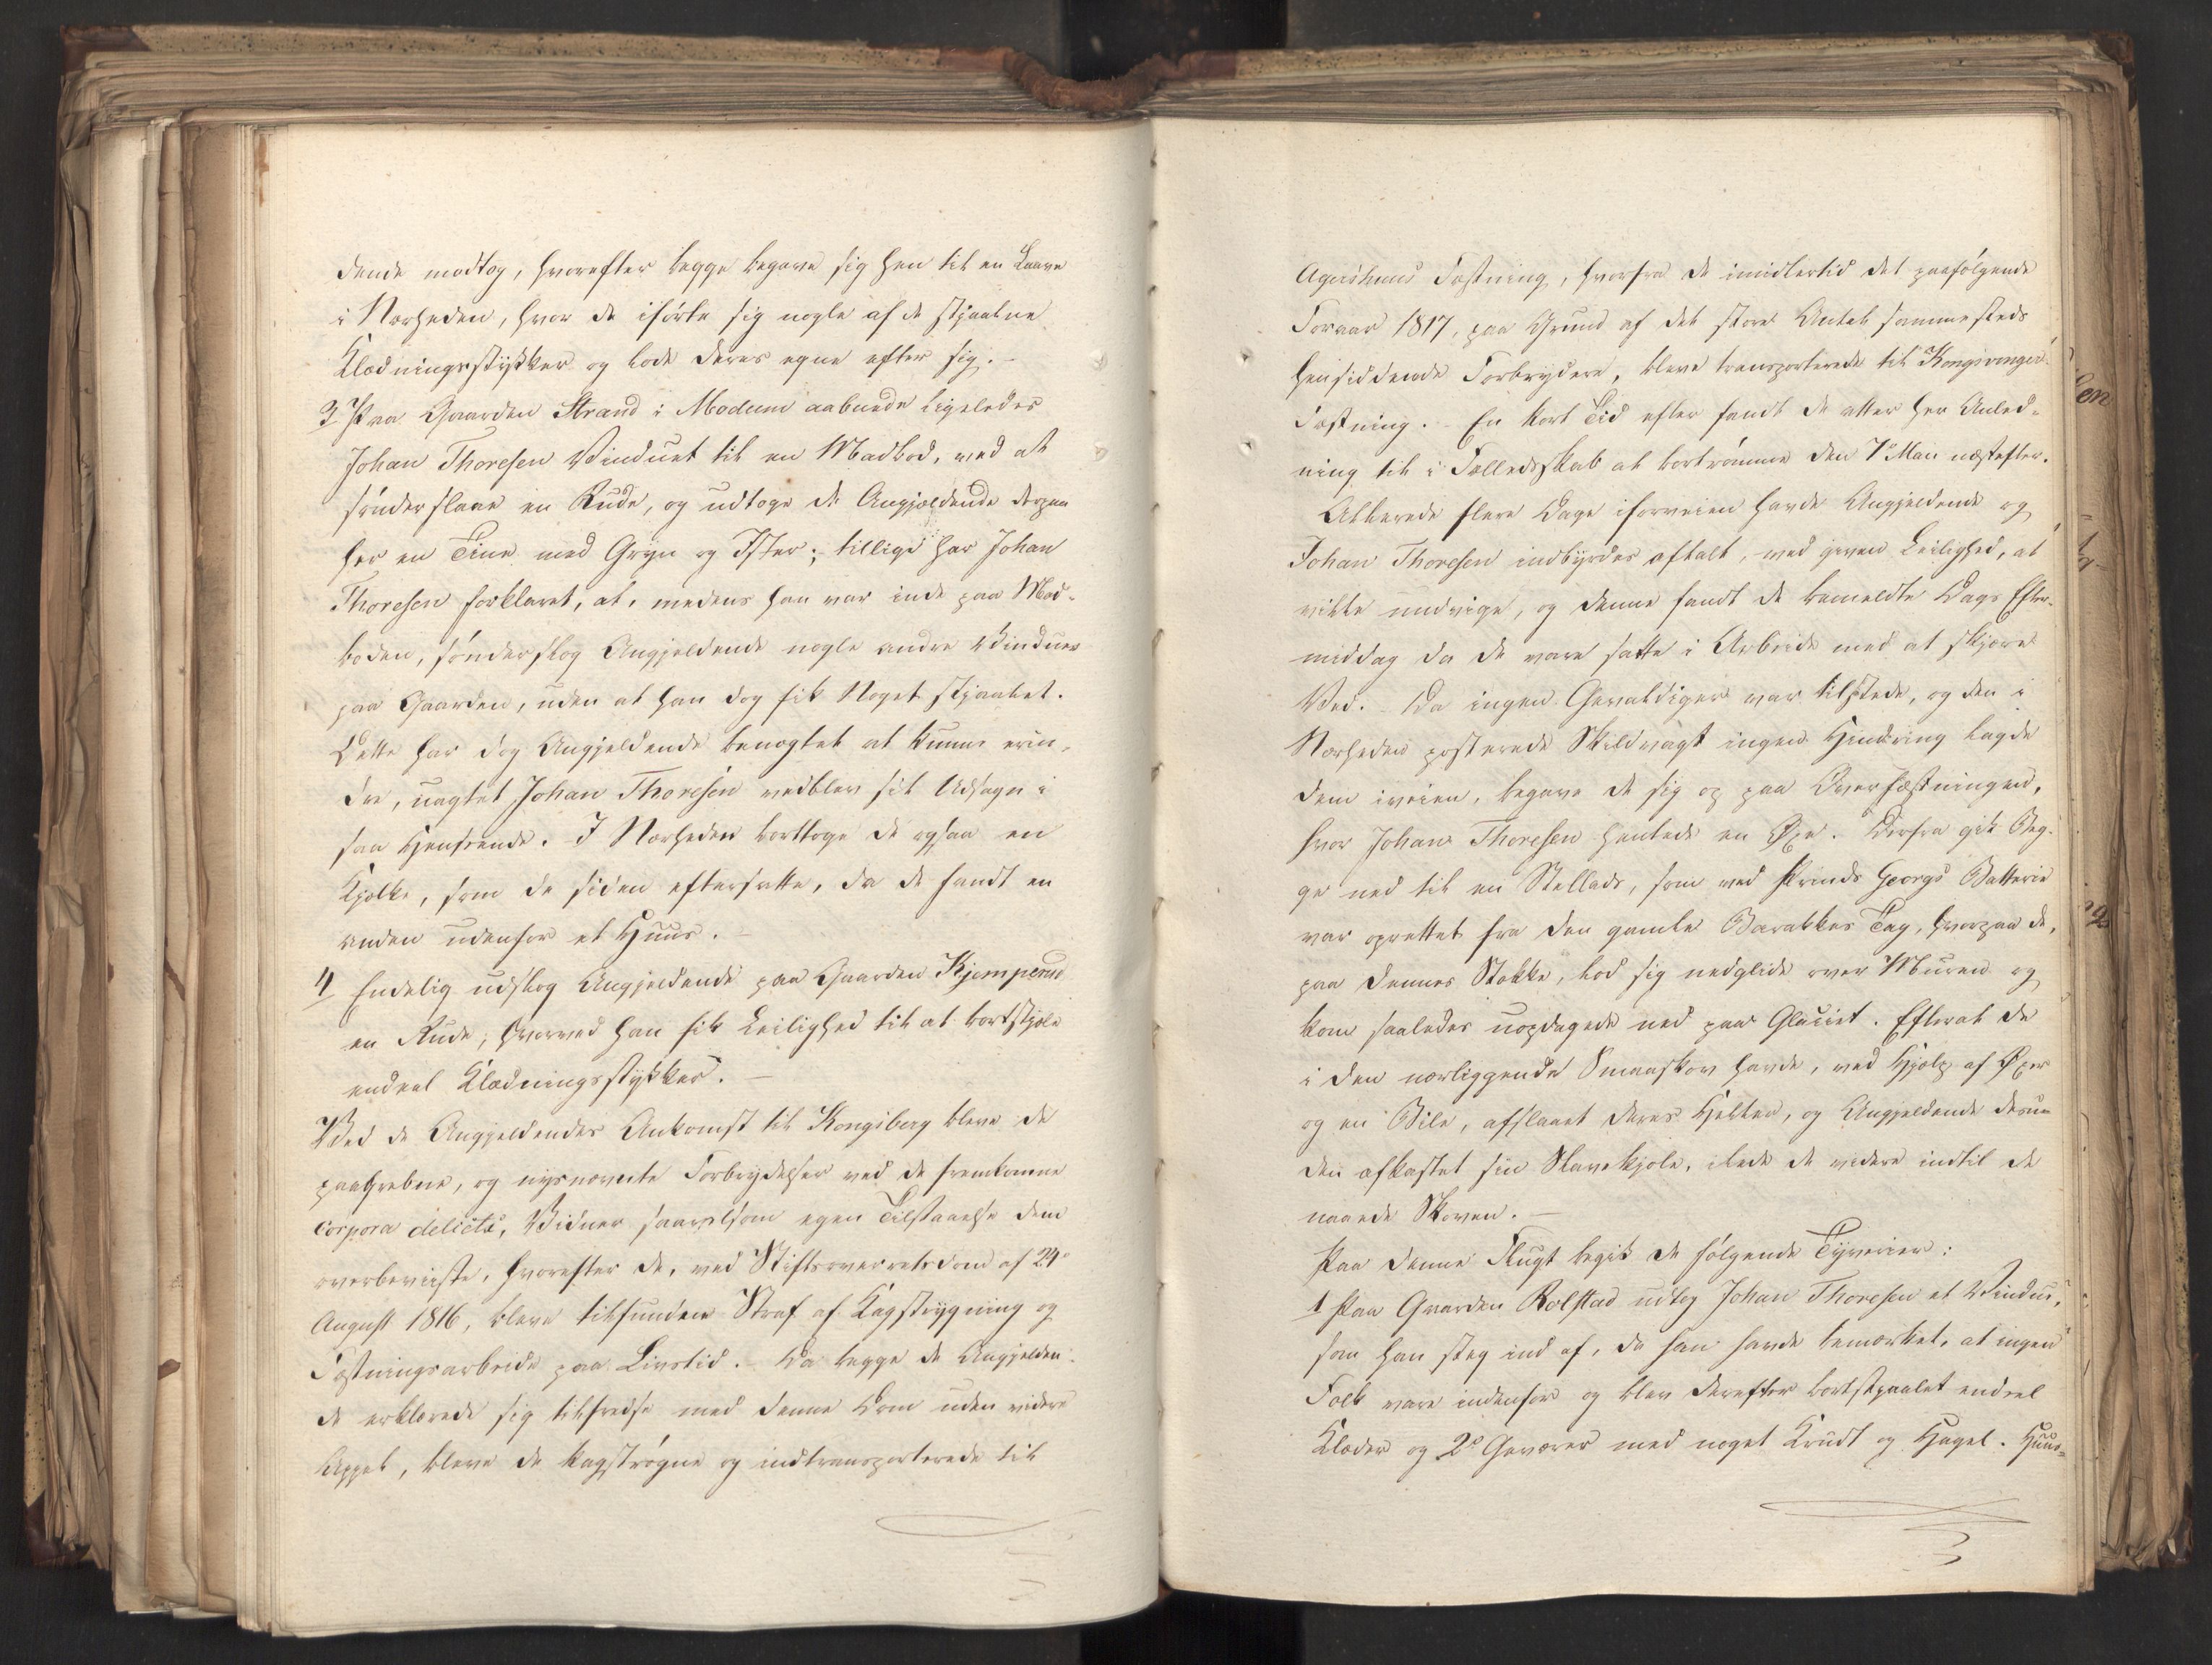 dende modtog, hvorefter begge begave sig hen til en Laave
i Nærheden, hvor de iførte sig nogle af de stjaalne
Klædningsstykker og lode deres egne efter sig. –
3 Paa Gaarden Strand i Modum aabnede ligeledes
Johan Thoresen Vinduet til en Madbod, ved at
sønderslaae en Rude, og udtoge de Angjældende derpaa
her en Tine med Gryn og Ister; tillige har Johan
Thoresen forklaret, at, medens han var inde paa Mad-
boden, sønderslog Angjeldende nogle andre Vinduer
paa Gaarden, uden at han dog fik Noget stjaalet.
Dette har dog Angjeldende benægtet at kunne erin-
dre, uagtet Johan Thoresen vedblev sit Udsagn i
saa Henseende. I Nærheden borttoge de ogsaa en
Kjælke, som de siden eftersatte, da de fandt en
anden udenfor et Huus. –
4 Endelig udslog Angjeldende paa Gaarden Kjemperud
en Rude, hvorved han fik Leilighed til at bortstjæle
endeel Klædningsstykker. –
Ved de Angjeldendes Ankomst til Kongsberg bleve de
paagrebne, og nysnævnte Forbrydelser ved de fremkomne
corpora delicti, Vidner saavelsom egen Tilstaaelse dem
overbeviiste, hvorefter de, ved Stiftsoverretsdom af 24de
August 1816, bleve tilfundne Straf af Kagstrygning og
Fæstningsarbeide paa Livstid. – Da begge de Angjelden-
de erklærede sig tilfredse med denne Dom uden videre
Appel, bleve de kagstrøgne og indtransporterede til
Agershuus Fæstning, hvorfra de imidlertid det paafølgende
Foraar 1817, paa Grund af det store Antal sammesteds
hensiddende Forbrydere, bleve transporterede til Kongsvinger
Fæstning. – En kort Tid efter fandt de atter her Anled-
ning til i Fælledsskab at bortrømme den 7de Mai næstefter.
Allerede flere Dage iforveien havde Angjeldende og
Johan Thoresen indbyrdes aftalt, ved given Leilighed, at
ville undvige, og denne fandt de bemeldte Dags Efter-
middag da de vare satte i Arbeide med at skjære
Ved. – Da ingen Gevaldiger var tilstede, og den i
Nærheden posterede Skildvagt ingen Hindring lagde
dem iveien, begave de sig op paa Overfæstningen,
hvor Johan Thoresen hentede en Øxe. Derfra gik Beg-
ge ned til en Stellads, som ved Prinds Georgs Batterie
var oprettet fra den gamle Barakkes Tag, hvorpaa de,
paa dennes Stokke, lod sig nedglide over Muren og
kom saaledes uopdagede ned paa Glaciet. Efterat de
i den nærliggende Smaaskov havde, ved Hjelp af Øxer
og en Bile, afslaaet deres Helter, og Angjeldende desu-
den afkastet sin Slavekjole, ilede de videre indtil de
naaede Skoven. –
Paa denne Flugt begik de følgende Tyverier:
1 Paa Gaarden Rolstad udtog Johan Thoresen et Vindue,
som han steg ind af, da han havde bemærket, at ingen
Folk vare indenfor og blev derefter bortstjaalet endeel
Klæder og 2de Geværer med noget Krudt og Hagel. Huus-